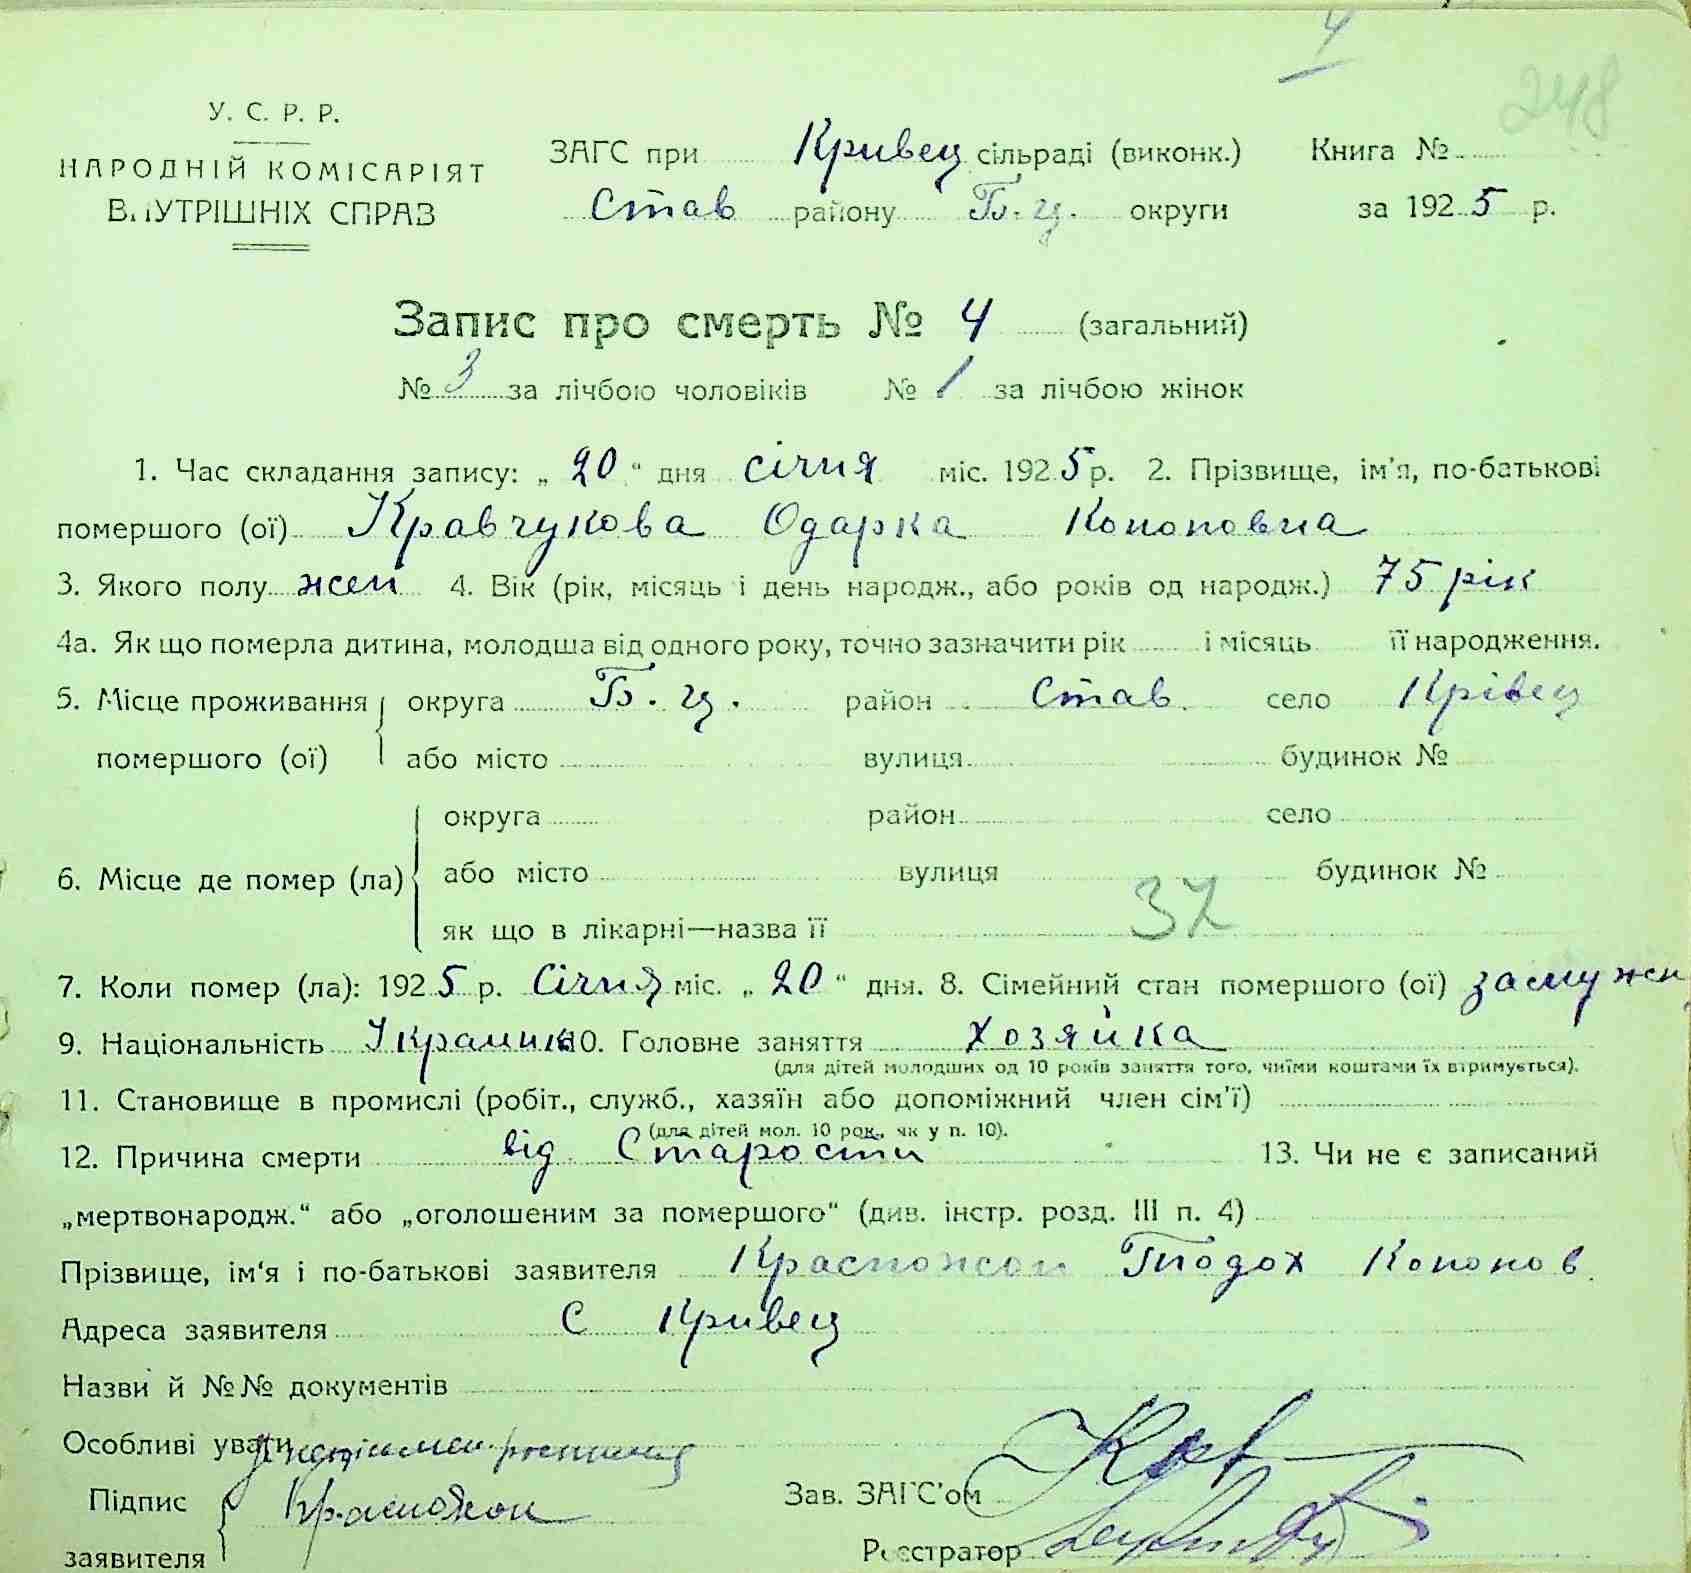 4
248
У. С. Р. Р.
НАРОДНІЙ КОМІСАРІЯТ
ВНУТРІШНІХ СПРАВ
ЗАГС при Кривец сільраді (виконк.) Книга №
Став району Б. Ц. округи за 1925 р.
Запис про смерть № 4 (загальний)
№ 3 за лічбою чоловіків № 1 за лічбою жінок
1. Час складання запису: „20“ дня січня міс. 1925 р. 2. Прізвище, ім'я, по-батькові
помершого (ої) Кравчукова Одарка Кононовна
3. Якого полу жен 4. Вік (рік, місяць і день народж., або років од народж.) 75 рік
4а. Як що померла дитина, молодша від одного року, точно зазначити рік і місяць її народження.
5. Місце проживання округа Б. Ц. район Став. село Крівец
помершого (ої) або місто вулиця будинок №
округа район село
6. Місце де помер (ла) або місто вулиця будинок №
як що в лікарні—назва її 37
7. Коли помер (ла): 1925 р. Січня міс. „20“ дня. 8. Сімейний стан помершого (ої) замужен
9. Національність Украинка 10. Головне заняття хозяйка
(для дітей молодших од 10 років заняття того, чиїми коштами їх втримується).
11. Становище в промислі (робіт., служб., хазяїн або допоміжний член сім'ї)
(для дітей мол. 10 рок., як у п. 10).
12. Причина смерти від Старости 13. Чи не є записаний
„мертвонародж.“ або „оголошеним за помершого“ (див. інстр. розд. III п. 4)
Прізвище, ім'я і по-батькові заявителя Красножон Тодох Кононов
Адреса заявителя С Кривец
Назви й №№ документів
Особливі уваги
Підпис Красножон Зав. ЗАГС'ом
заявителя Реєстратор